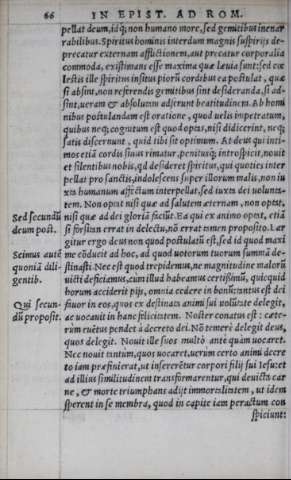 66 IN EPIST. AD ROM.
pellat deum, idq; non humano more, sed gemitibus inenar
rabilibus. Spiritus hominis interdum magnis suspirijs de-
precatur externam afflictionem, aut precatur corporalia
commoda, existimans esse maxima quæ leuia sunt: sed cœ
lestis ille spiritus insitus piorũ cordibus ea postulat, quæ
si absint, non referendis gemitibus sint desideranda, si ad-
sint, ueram & absolutam adferunt beatitudinem. Ab homi
nibus postulandam est oratione, quod uelis impetratum,
quibus neq; cognitum est quod optas, nisi didicerint, neq;
satis discernunt, quid tibi sit optimum. At deus qui inti-
mos etiã cordis sinus rimatur, penitusq; introspicit, nouit
et silentibus nobis, qd desideret spiritus, qui quoties inter
pellat pro sanctis, indolescens super illorum malis, non iu
xta humanum affectum interpellat, sed iuxta dei uolunta-
tem. Non optat nisi quæ ad salutem æternam, non optat,
Sed secundũ nisi quæ ad dei gloriã faciũt. Ea qui ex animo optat, etiã
deum post. si forsitan errat in delectu, nõ errat tamen proposito. Lar
gitur ergo deus non quod postulatũ est, sed id quod maxi
Scimus autẽ me cõducit ad hoc, ad quod uotorum tuorum summã de-
quoniã dili- stinasti. Nec est quod trepidemus, ne magnitudine malorũ
gentib. uicti deficiamus, cum illud habeamus certissimũ, quicquid
horum acciderit pijs, omnia cedere in bonũ: tantus est dei
Qui secun- fauor in eos, quos ex destinata animi sui uolũtate delegit,
dũ proposit. ac uocauit in hanc felicitatem. Noster conatus est: cæte-
rùm euētus pendet à decreto dei. Nõ temerè delegit deus,
quos delegit. Nouit ille suos multò ante quàm uocaret.
Nec nouit tantùm, quos uocaret, uerùm certo animi decre
to iam præfinierat, ut insererētur corpori filij sui Iesu: et
ad illius similitudinem transformarentur, qui deuicta car
ne, & morte triumphans adijt immortalitatem, ut idem
sperent in se membra, quod in capite iam peractum con
spiciunt: